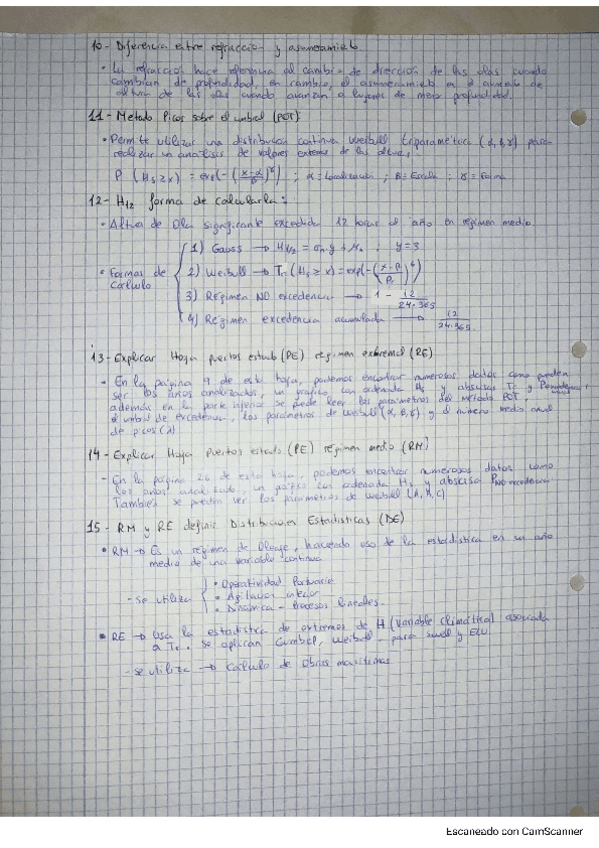 10- Diferencia entre refracción y asomeramiento
• La refracción hace referencia al cambio de dirección de las olas cuando
cambian de profundidad, en cambio, el asomeramiento es el aumento de
altura de las olas cuando avanzan a lugares de menor profundidad.
11- Metodo Picos sobre el umbral (POT):
• Permite utilizar una distribución continua Weibull triparamétrica (α,β,γ) para
realizar un analisis de valores extremos de las alturas,
P (Hs ≥ x) = exp(-(x-α/β)^γ) ; α = Localización ; β = Escala ; γ = Forma
12- H12 forma de calcularla:
• Altura de Ola significante excedida 12 horas al año en régimen medio.
• Formas de Calculo
1) Gauss → H1/2 = σn·y + μn ; y = 3
2) Weibull → (Hs ≥ x) = exp(-(x-β)
3) Régimen NO excedencia → 1 - 12/24·365
4) Régimen excedencia acumulada → 12/24·365
13- Explicar Hoja puertos estado (PE) régimen extremal (RE)
• En la página 9 de esta hoja, podemos encontrar numerosos datos como pueden
ser los años analizados, un grafico con ordenada Hs y abscisas Tr y
además en la parte inferior se puede leer los parámetros del metodo POT:
el umbral de excedencia, los parámetros de Weibull (α, β, γ) y el número medio anual
de picos (λ)
14- Explicar Hoja Puertos estado (PE) régimen medio (RM)
- En la página 26 de esta hoja, podemos encontrar numerosos datos como
los años analizados, un gráfico con ordenada Hs y abscisa P no excedencia
También se pueden ver los parámetros de Weibull (A, B, C)
15- RM y RE definir Distribuciones Estadísticas (DE)
• RM → Es un régimen de Oleaje, haciendo uso de la estadística en un año
medio de una variable continua
- Se utiliza
• Operatividad Portuaria
• Agitación interior
• Dinámica - Procesos lineales.
• RE → Usa la estadística de extremos de H (variable climática) asociada
a Tr. Se aplican Gumbel, Weibull para swell y ELU
- se utiliza → Calculo de Obras maritimas
Escaneado con CamScanner